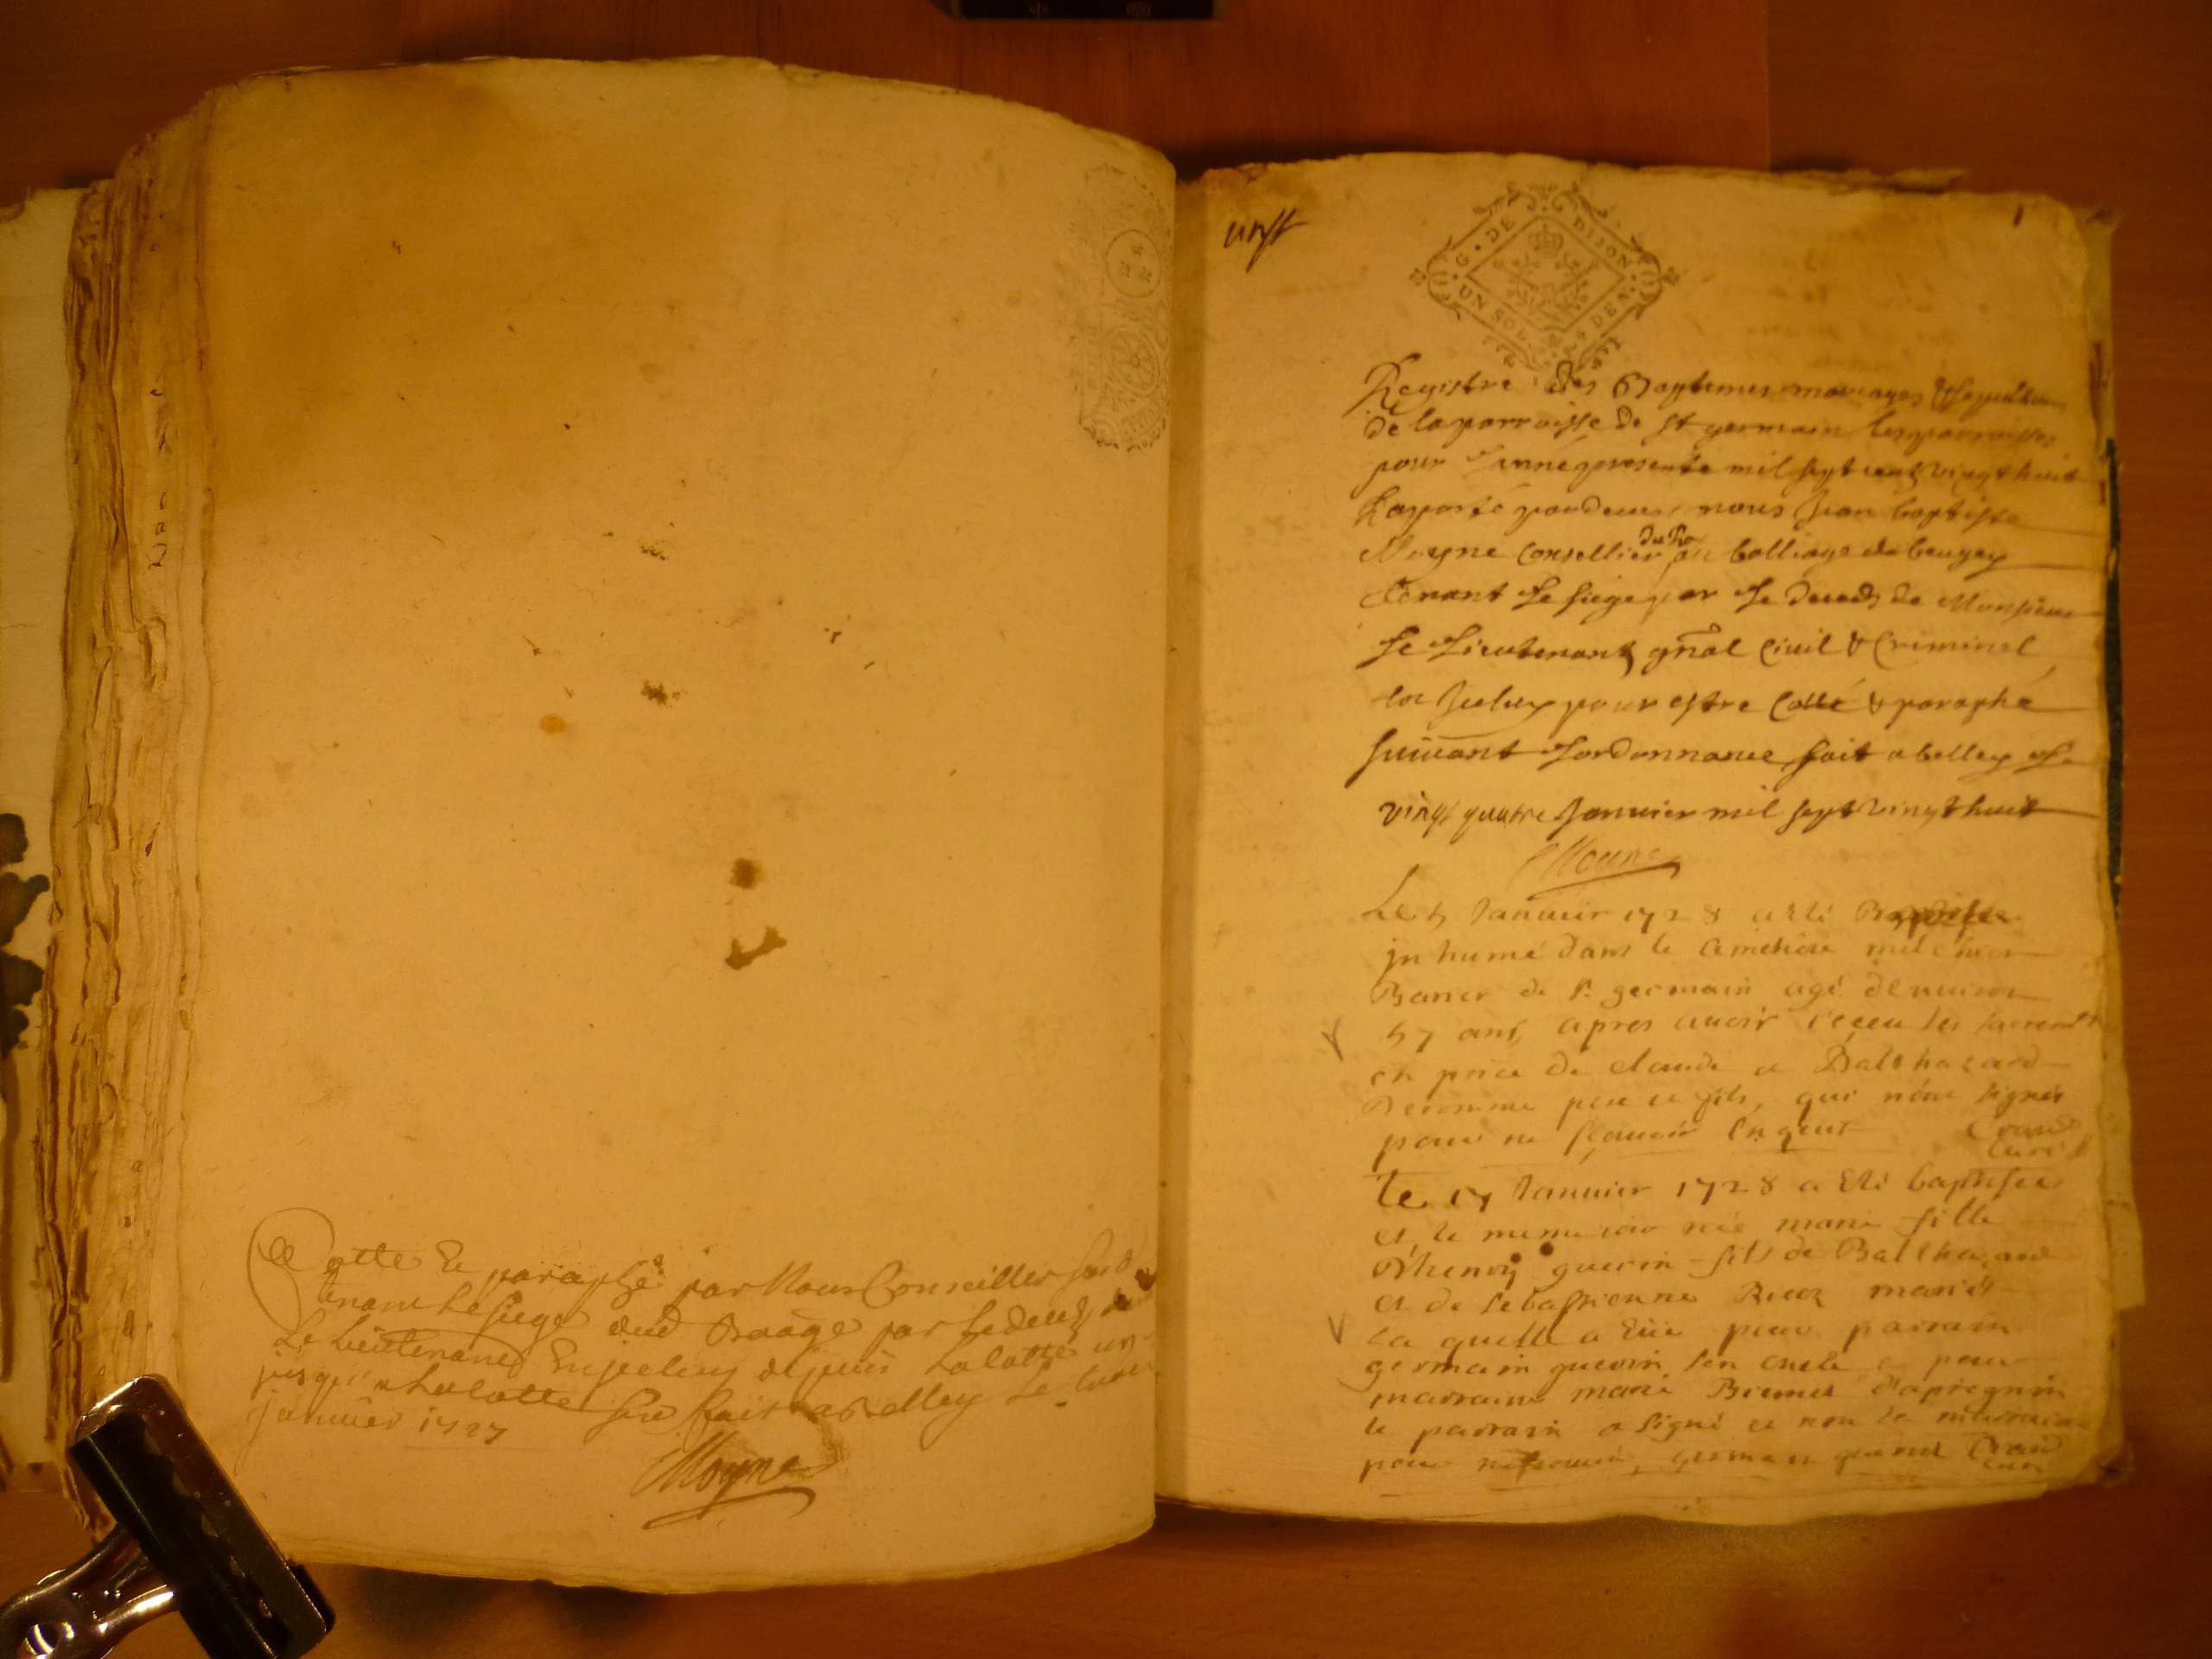 Cotte & paraphé par Nous Conseiller
tenant le siege dud Baage par le deceds
Le Lieutenant En jceluy depuis La cotte un
jusqu'a la cotte fait a Belley Le
janvier 1727
Moyne
G. DE DIJON
UN SOL DEN.
Registre des Baptemes mariages & sepultures
de la parroisse de st germain les parroisses
pour l'anné presente mil sept cent vingt huit
Raporté pardevant nous Jean baptiste
Moyne Consellier du Roy au balliage du beugey
tenant le siege par le deceds de Monsieur
le Lieutenant gnāl Civil & Criminel
pour estre Cotté & paraphé
suivant l'ordonnance fait a belley le
vingt quatre Janvier mil sept vingt huit
Moyne
Le 5 Janvier 1728 a esté
inhumé dans le Cimetiere melchior
de st germain agé denviron
57 ans, apres avoir reçeu les sacrents
en de claude et Balthazard
pere et fils, qui n'ont signés
pour ne sçavoir Enquis
Curé
Le 17 Janvier 1728 a Eté baptisée
et le meme jour née marie fille
d'henry guerin fils de Balthazard
et de sebastienne mariés
La quelle a Eüe pour parrain
germain guerin son oncle et pour
marraine marie d'apregnin
le parrain a signé et non la marraine
pour ne sçavoir, germain guerin
Curé